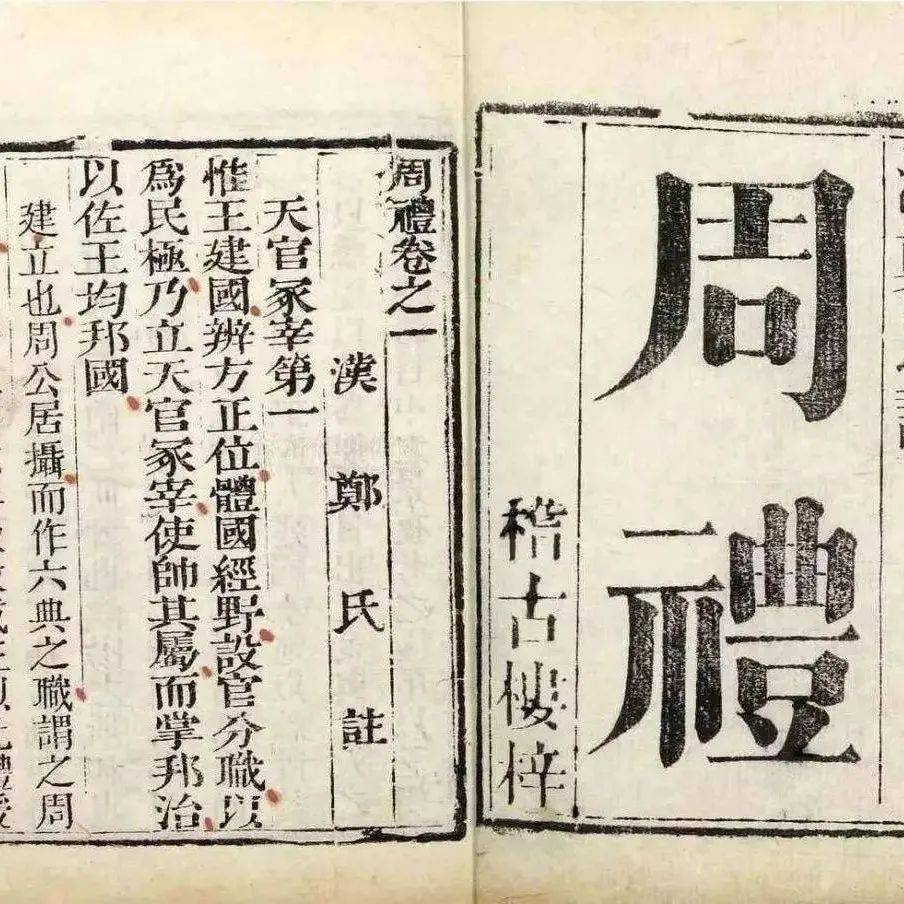 周禮
稽古樓梓
周禮卷之一
漢鄭氏註
天官冢宰第一
惟王建國辨方正位體國經野設官分職以
為民極乃立天官冢宰使帥其屬而掌邦治
以佐王均邦國
建立也周公居攝而作六典之職謂之周